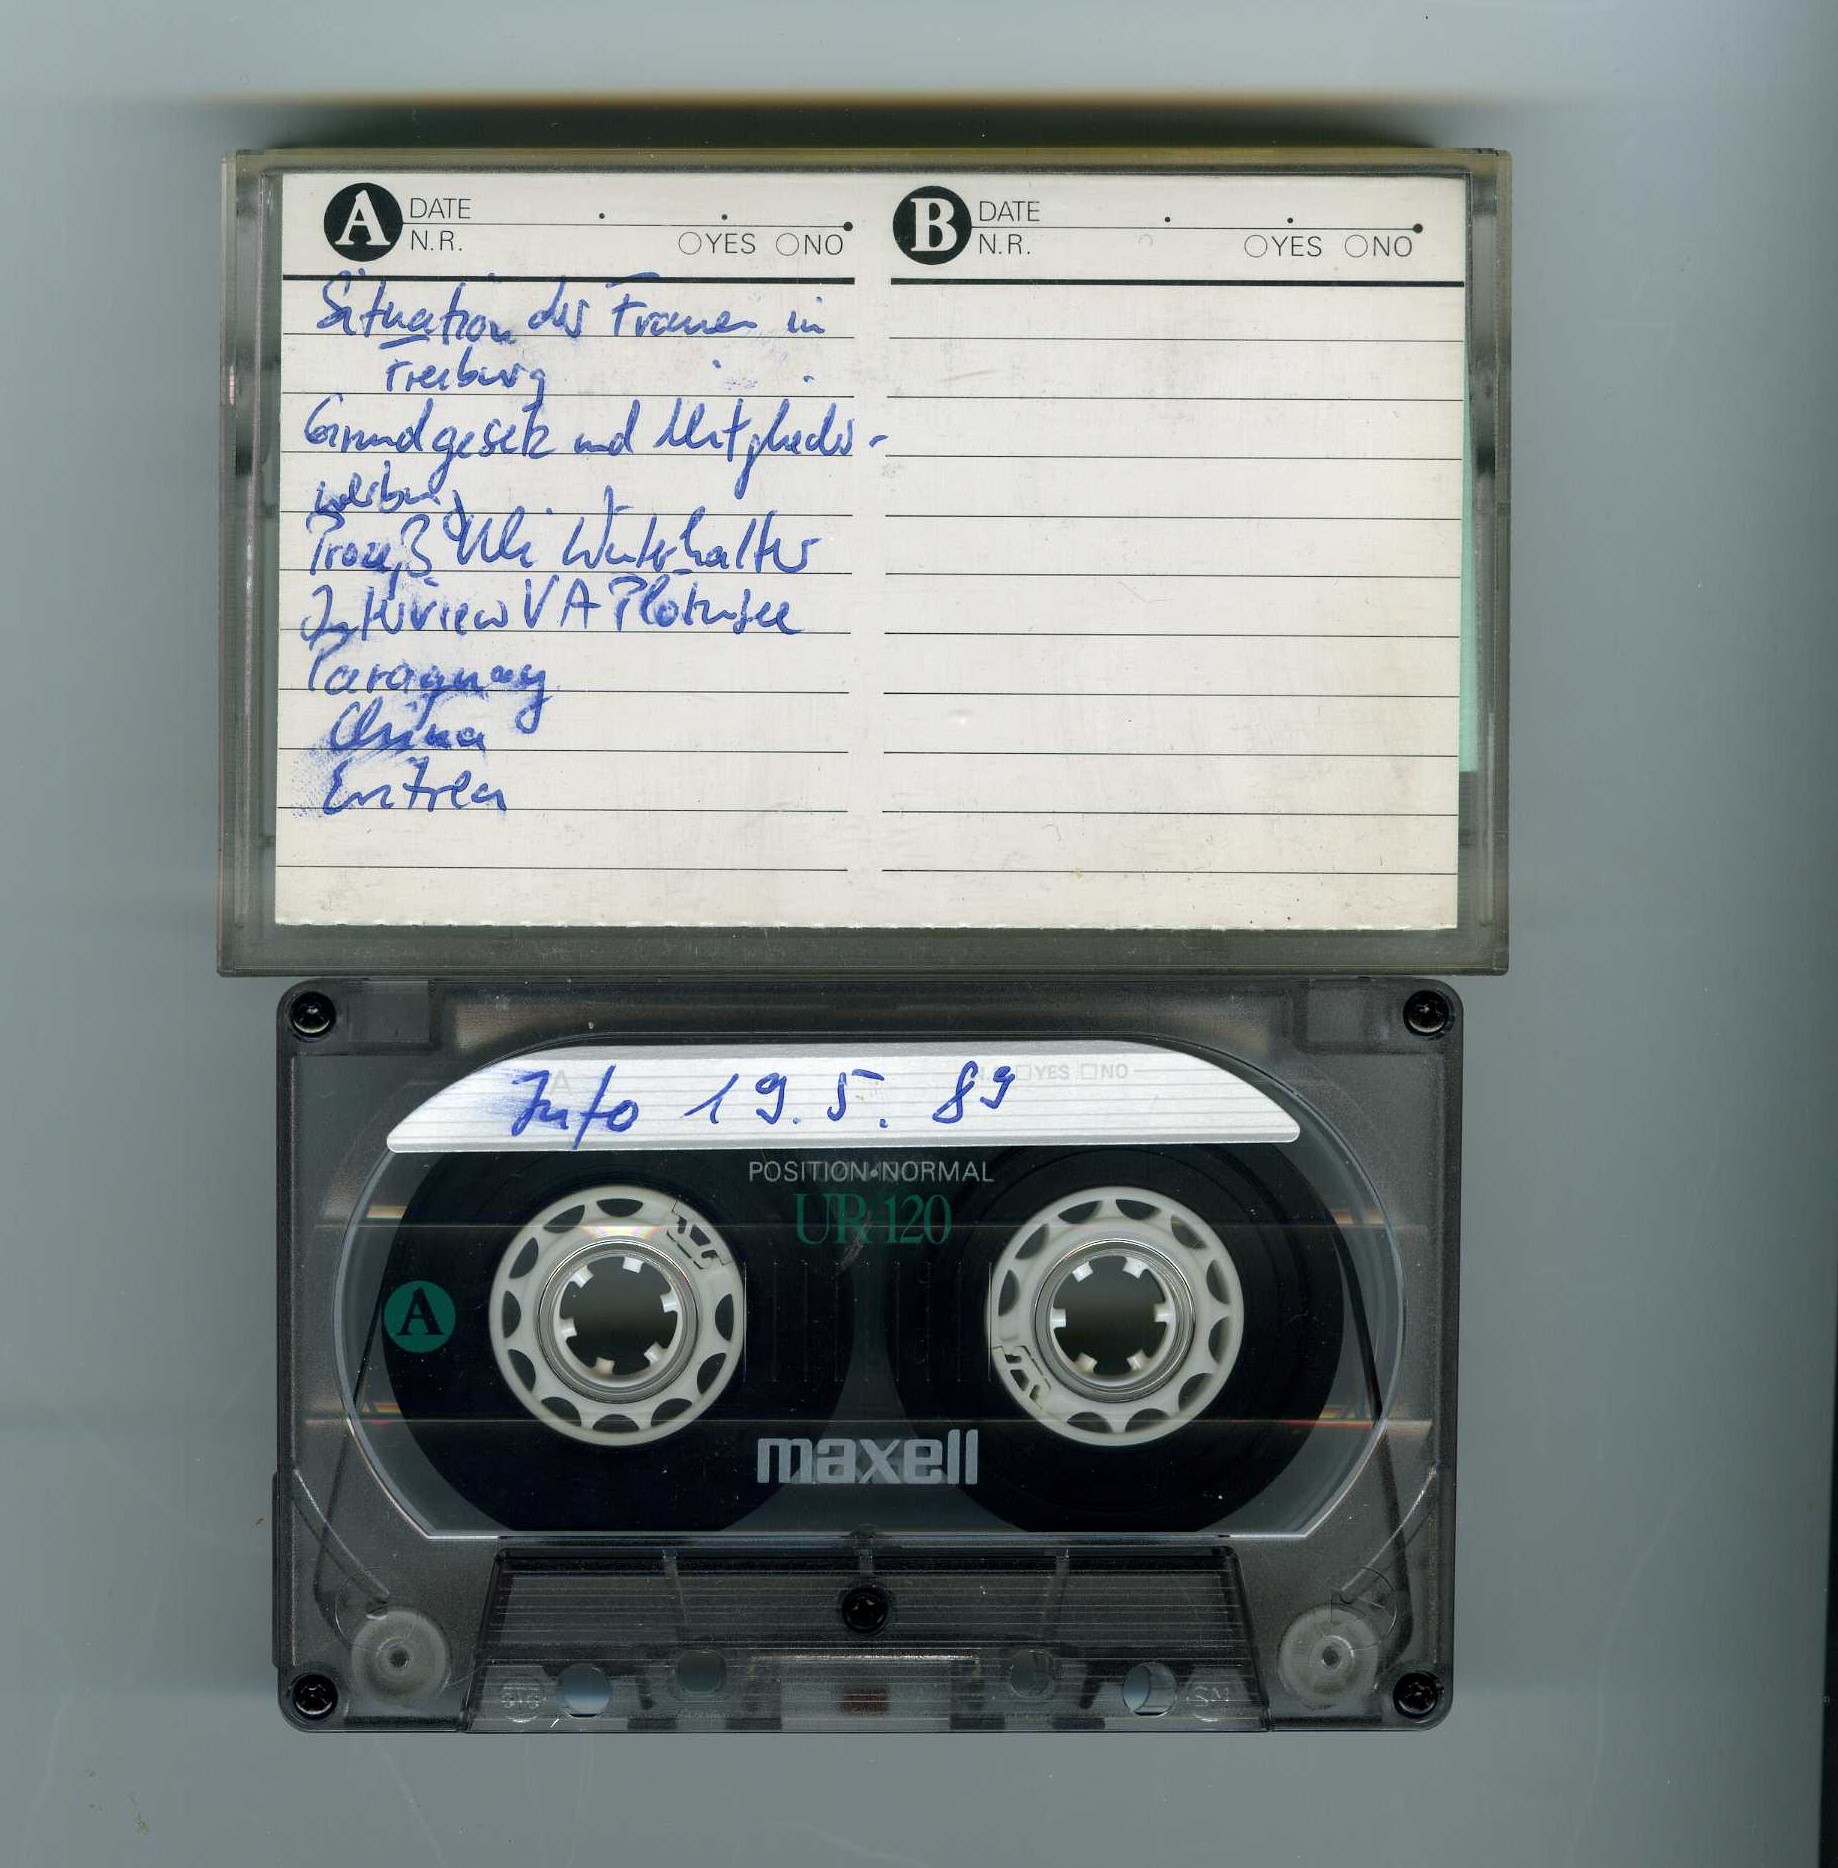 A DATE
N.R. ○YES ○NO
B DATE
N.R. ○YES ○NO
Situation der Frauen in
Freiburg
Grundgesetz und Mitglieder-
werbung
Prozeß Uli Winterhalter
Interview VA Plötzensee
Paraguay
China
Eritrea
A □YES □NO
Info 19.5.89
POSITION•NORMAL
UR•120
A
maxell